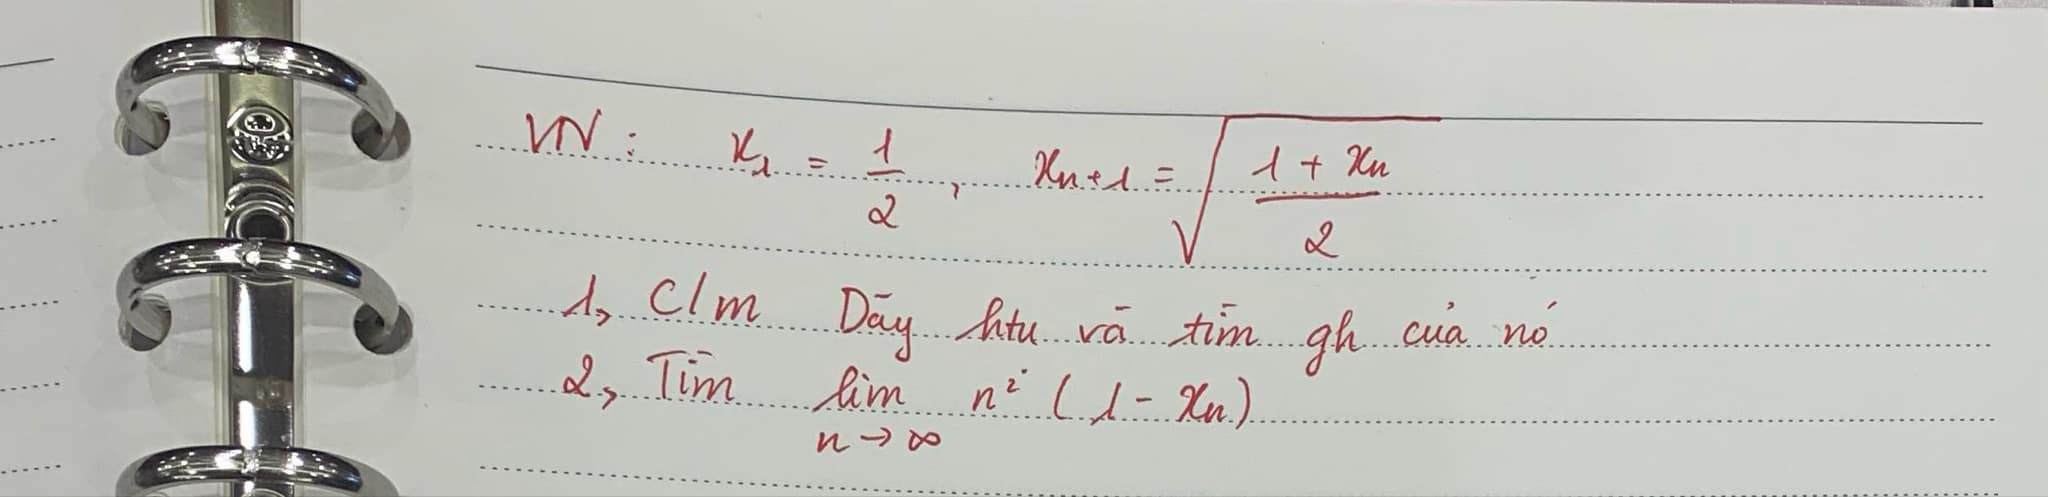 VN : x₁ = 1/2 , xₙ₊₁ = √((1 + xₙ)/2)
1, C/m Dãy htu và tìm gh của nó
2, Tìm lim n→∞ n² (1 - xₙ)